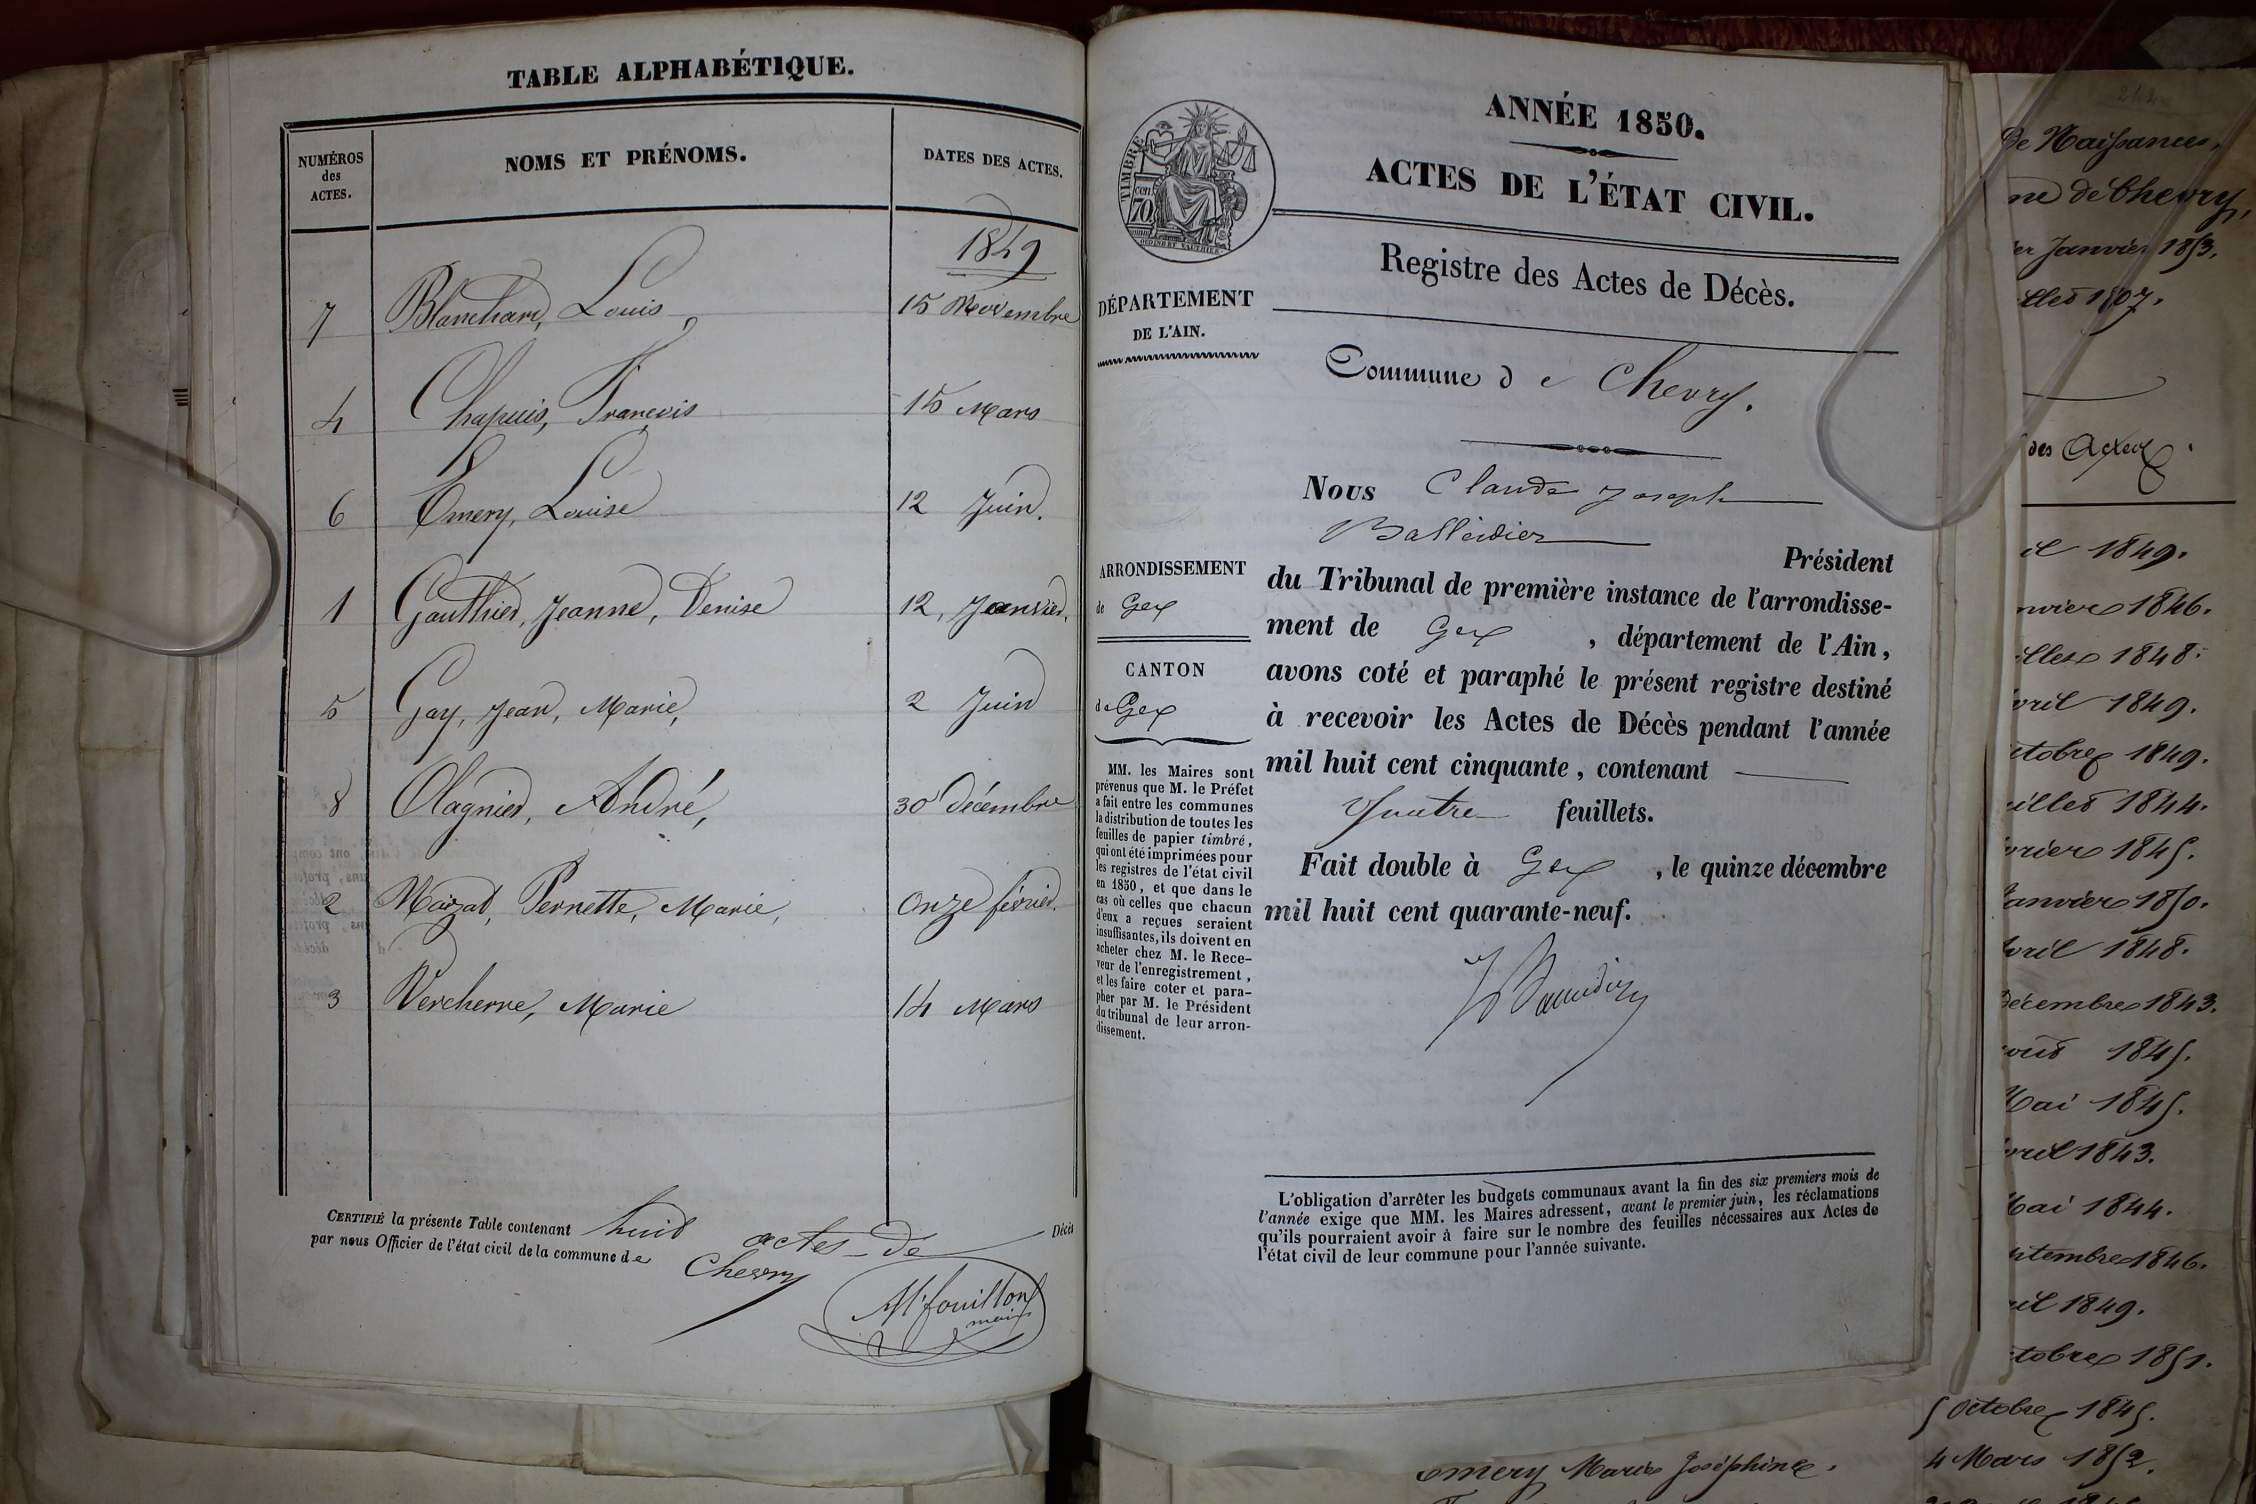 TABLE ALPHABÉTIQUE.
NUMÉROS des ACTES.
NOMS ET PRÉNOMS.
DATES DES ACTES.
1849
7 Blanchard, Louis, 15 Novembre
4 Chapuis, François 15 Mars
6 Emery, Louise 12 Juin.
1 Gauthier, Jeanne, Denise 12, Janvier.
5 Gay, Jean, Marie, 2 Juin
8 Olagnier, André, 30 décembre
2 Pernette, Marie, Onze février.
3 Vercherre, Marie 14 Mars
CERTIFIÉ la présente Table contenant huit actes de Décès
par nous Officier de l'état civil de la commune de Chevry
maire
TIMBRE
70
DÉPARTEMENT
DE L'AIN.
ARRONDISSEMENT
de Gex
CANTON
de Gex
MM. les Maires sont
prévenus que M. le Préfet
a fait entre les communes
la distribution de toutes les
feuilles de papier timbré,
qui ont été imprimées pour
les registres de l'état civil
en 1850, et que dans le
cas où celles que chacun
d'eux a reçues seraient
insuffisantes, ils doivent en
acheter chez M. le Rece-
veur de l'enregistrement,
et les faire coter et para-
pher par M. le Président
du tribunal de leur arron-
dissement.
ANNÉE 1850.
ACTES DE L'ÉTAT CIVIL.
Registre des Actes de Décès.
Commune de Chevry.
Nous Claude Joseph
Balleidier
Président
du Tribunal de première instance de l'arrondisse-
ment de Gex, département de l'Ain,
avons coté et paraphé le présent registre destiné
à recevoir les Actes de Décès pendant l'année
mil huit cent cinquante, contenant
Quatre feuillets.
Fait double à Gex, le quinze décembre
mil huit cent quarante-neuf.
L'obligation d'arrêter les budgets communaux avant la fin des six premiers mois de
l'année exige que MM. les Maires adressent, avant le premier juin, les réclamations
qu'ils pourraient avoir à faire sur le nombre des feuilles nécessaires aux Actes de
l'état civil de leur commune pour l'année suivante.
De Naissances,
de Chevry,
Janvier 1853.
des Actes
1849.
1846.
1848.
1849.
1849.
1844.
1845.
Janvier 1850.
1848.
décembre 1843.
1845.
Mai 1845.
1843.
Mai 1844.
1846.
1849.
1851.
5 Octobre 1845.
Emery Marie Joséphine. 4 Mars 1852.